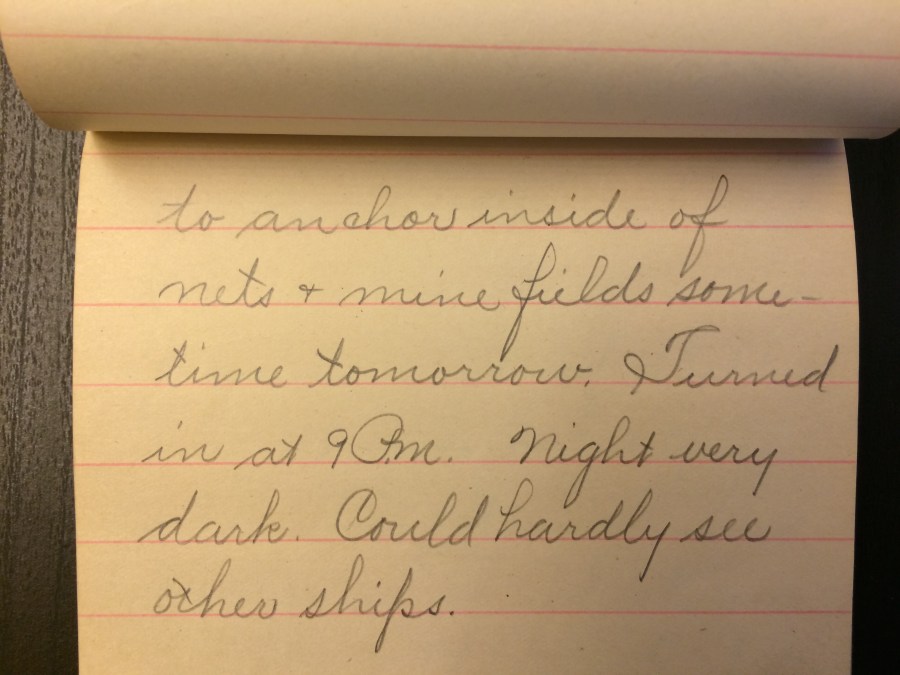 to anchor inside of
nets + mine fields some-
time tomorrow. Turned
in at 9 P.m. Night very
dark. Could hardly see
other ships.